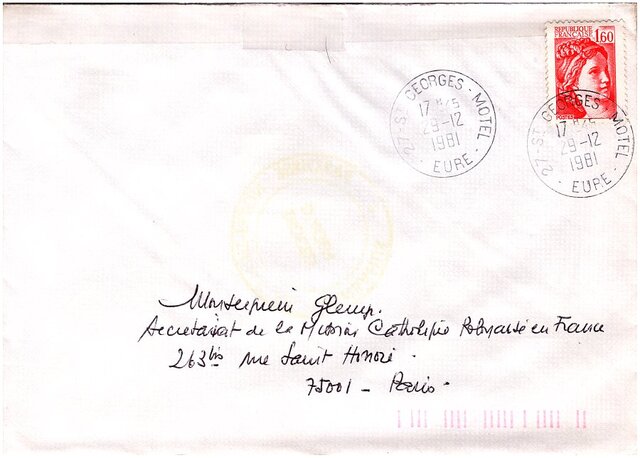 REPUBLIQUE
FRANCAISE
1,60
27 - ST GEORGES - MOTEL
17 H 45
29-12
1981
- EURE -
27 - ST GEORGES - MOTEL
17 H 45
29-12
1981
- EURE -
Monseigneur Glemp.
Secretariat de la Mission Catholique Polonaise en France
263bis rue Saint Honoré.
75001 - Paris.